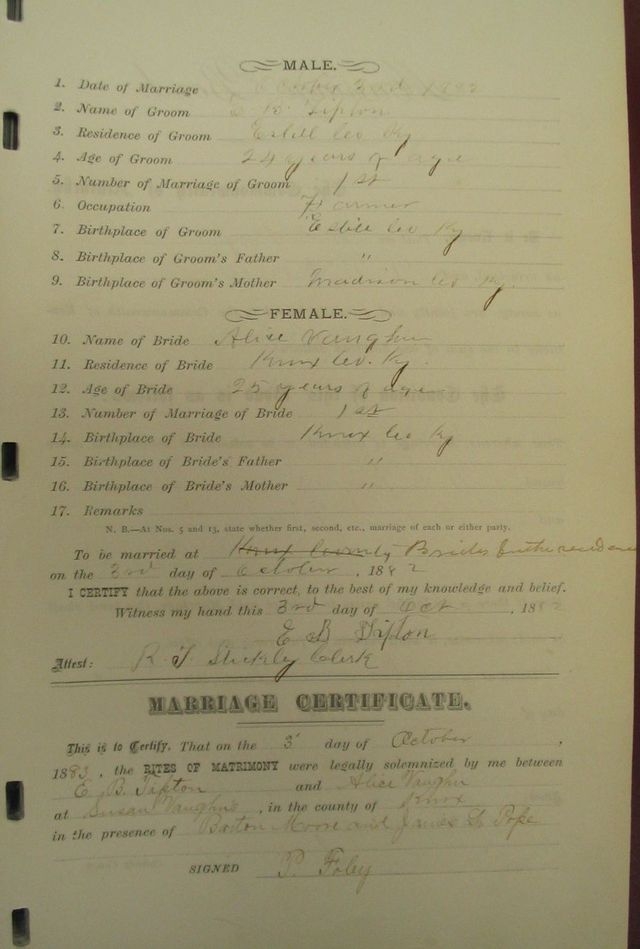 MALE.
1. Date of Marriage October 3rd 1882
2. Name of Groom E. B. Tipton
3. Residence of Groom Estill Co Ky
4. Age of Groom 24 years of age
5. Number of Marriage of Groom 1st
6. Occupation Farmer
7. Birthplace of Groom Estill Co Ky
8. Birthplace of Groom's Father "
9. Birthplace of Groom's Mother Madison Co Ky.
FEMALE.
10. Name of Bride Alice Vaughn
11. Residence of Bride Knox Co. Ky.
12. Age of Bride 25 years of age
13. Number of Marriage of Bride 1st
14. Birthplace of Bride Knox Co Ky
15. Birthplace of Bride's Father "
16. Birthplace of Bride's Mother "
17. Remarks
N. B.—At Nos. 5 and 13, state whether first, second, etc., marriage of each or either party.
To be married at Knox County Brides residence
on the 3rd day of October, 1882
I CERTIFY that the above is correct, to the best of my knowledge and belief.
Witness my hand this 3rd day of Oct, 1882
E B Tipton
Attest: R. T. Stickly Clerk
MARRIAGE CERTIFICATE.
This is to Certify, That on the 3 day of October,
1883, the RITES OF MATRIMONY were legally solemnized by me between
E. B. Tipton and Alice Vaughn
at Susan Vaughns, in the county of Knox
in the presence of Boston Moore and James Pope
SIGNED P. Foley